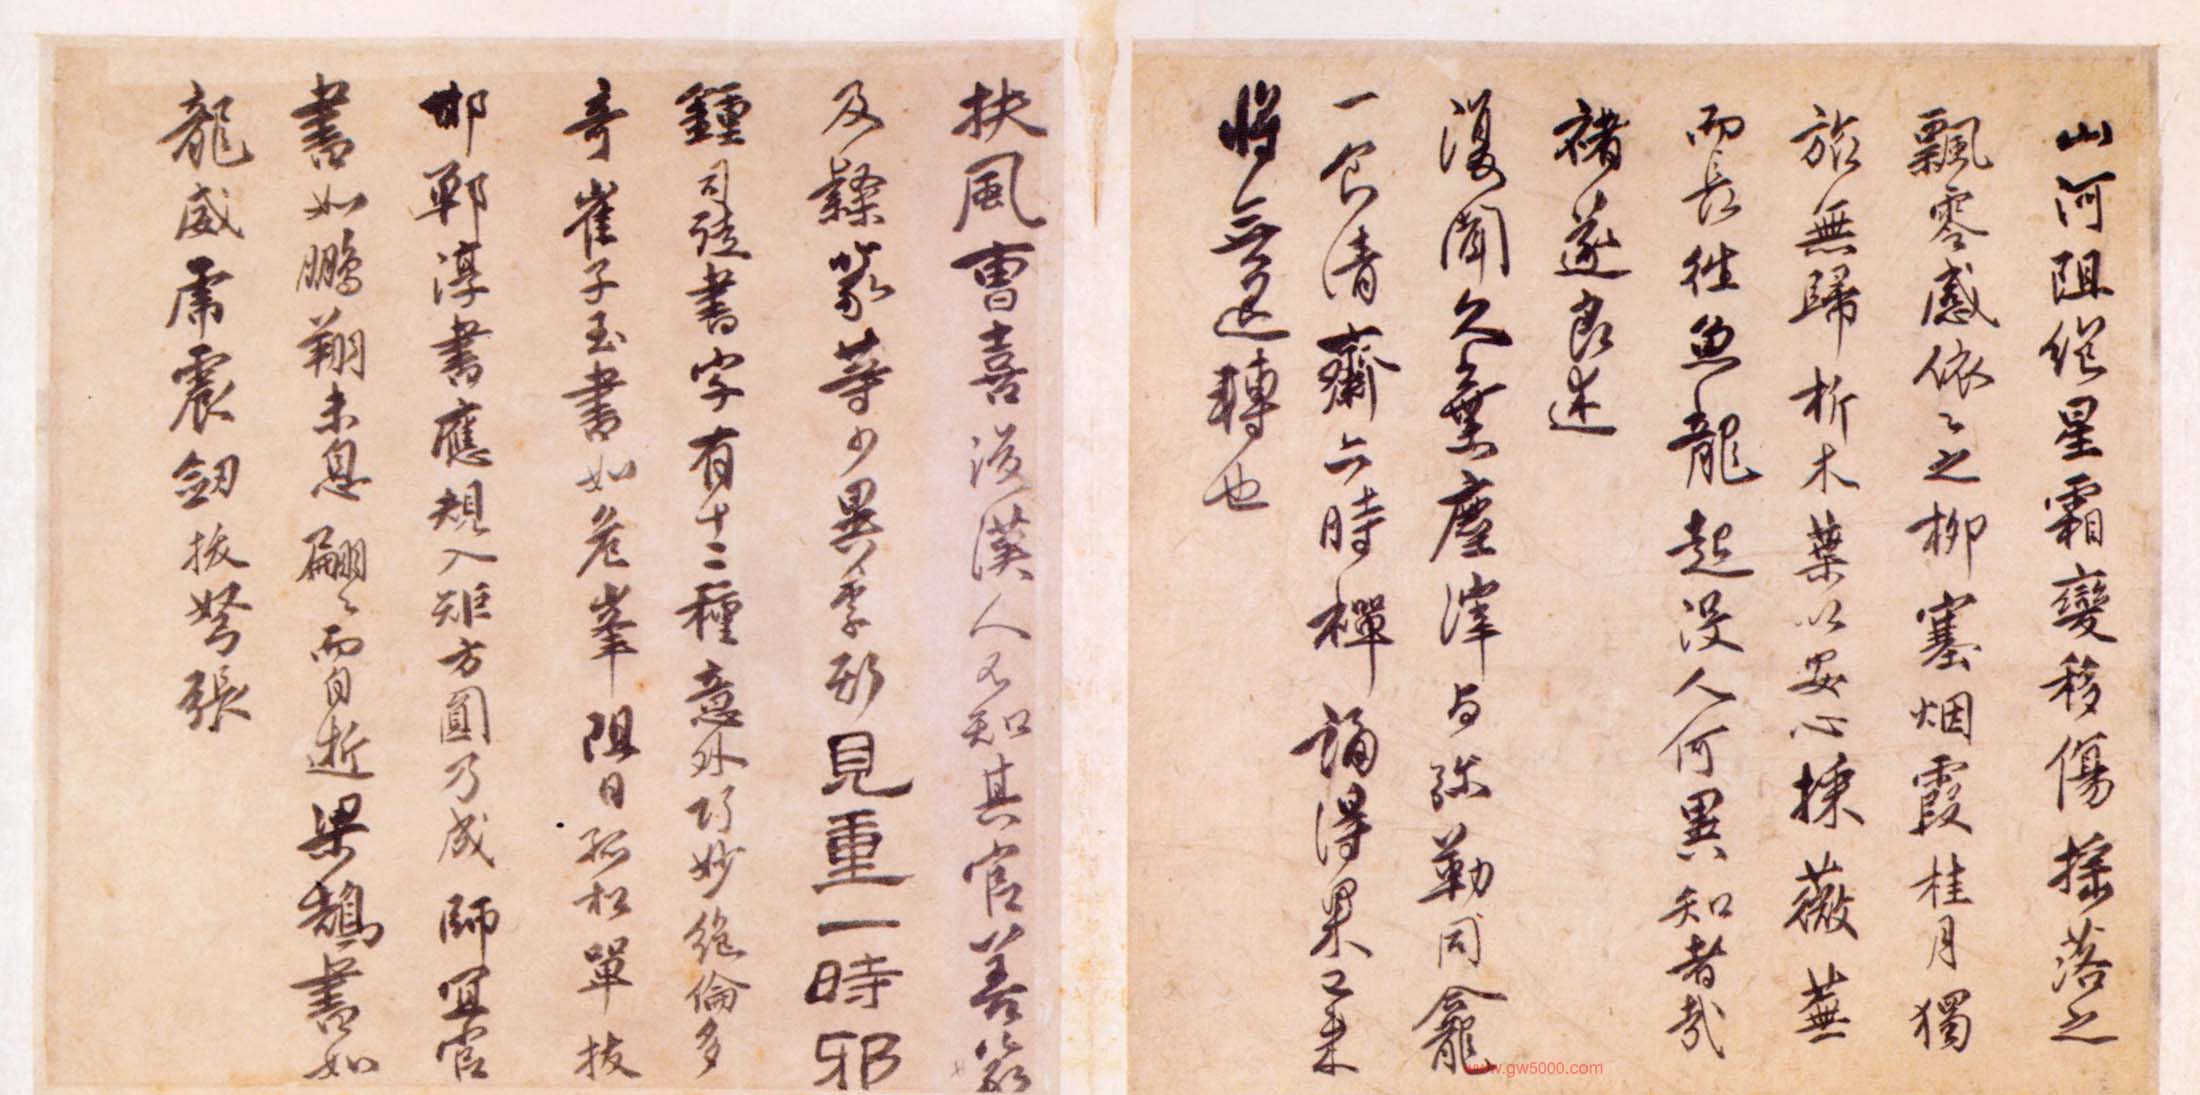 山河阻絕星霜變移傷搖落之
飄零感依〻之柳塞烟霞桂月獨
旅無歸折木葉以安心採薇蕪
而長性魚龍起沒人何異知者哉
褚遂良述
復聞久棄塵滓与弥勒同龕
一食清齋六時禪誦得果已來
將無退轉也
扶風曹喜後漢人不知其官善篆
及隸篆等少異李斯見重一時邪
鍾司徒書字有十二種意外巧妙絕倫多
奇崔子玉書如危峯阻日孤松單枝
邯鄲淳書應規入矩方圓乃成師宜官
書如鵬翔未息翩〻而自逝梁鵠書如
龍威虎震劒拔弩張
www.gw5000.com